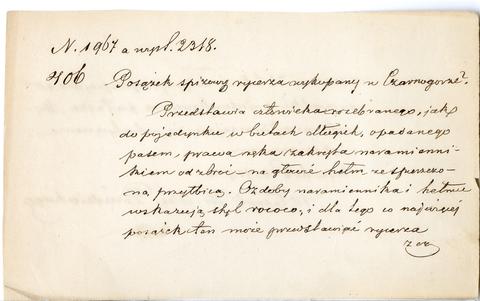 N. 1967 a wpł. 2318.
406 Posążek spiżowy rycerza wykopany w Czarnogorze?
Przedstawia człowieka rozebranego, jak
do pojedynku w butach długich, opasanego
pasem, prawa ręka zakryta naramienni-
kiem od zbroi na głowie hełm ze spuszczo-
ną przyłbicą. Ozdoby naramiennika i hełmu
wskazują styl rococo, i dla tego co najwięcej
posążek ten może przedstawiać rycerza